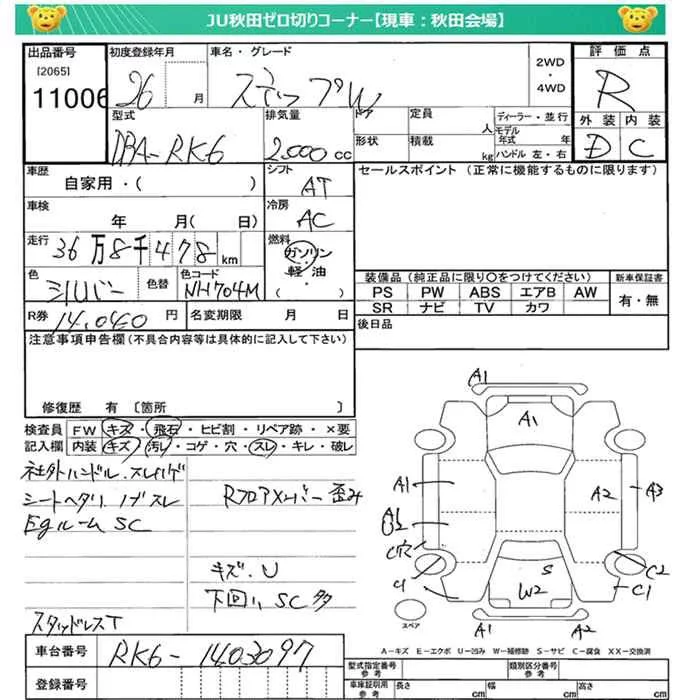 JU秋田ゼロ切りコーナー【現車:秋田会場】
出品番号 初度登録年月 車名・グレード 2WD・4WD 評価点
[2065]
11006 26 月 ステップW R
型式 排気量 ドア 定員 人 ディーラー・並行 外装 内装
DBA-RK6 2,000 cc 形状 積載 kg モデル年式 年 ハンドル 左・右 D C
車歴 自家用・( ) シフト AT セールスポイント (正常に機能するものに限ります)
車検 年 月( 日) 冷房 AC
走行 36万8千478 km 燃料 ガソリン 軽・油 ( )
色 シルバー 色替 色コード NH704M
装備品(純正品に限り〇をつけてください) 新車保証書
PS PW ABS エアB AW 有・無
SR ナビ TV カワ
R券 14,040 円 名変期限 月 日 後日品
注意事項申告欄(不具合内容等は具体的に記入して下さい)
修復歴 有 〔箇所 〕
検査員 FW キズ・飛石・ヒビ割・リペア跡・×要
記入欄 内装 キズ・汚レ・コゲ・穴・スレ・キレ・破レ
社外ハンドル.スレハゲ
シートヘタリ ノゲスレ
Egルーム SC
Rフロアメンバー歪み
キズ.U
下回り SC多
スタッドレスT
A1
A1
A1
A2
A3
A1
C穴
S
W2
C1
C2
C1
A1
A2
スペア
A-キズ E-エクボ U-凹み W-補修跡 S-サビ C-腐食 XX-交換済
車台番号 RK6-1403097
登録番号
型式指定番号 参考 類別区分番号 参考
車庫証明用 参考 長さ cm 幅 cm 高さ cm